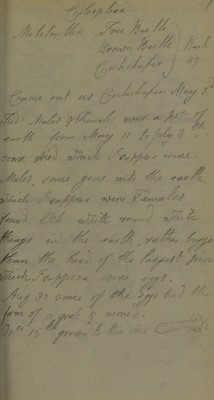 Coleoptera
Melolontha Tree Beetle
Brown Beetle
Cockchafer
Came out as Cockchafer May 3rd
Fed Males & Female over a pot of
earth from May 11 to July 8th
some died which I suppose were
Males, some gone into the earth
which I suppose were Females
found little white round white
things in the earth, rather bigger
than the head of the largest pin
which I suppose were eggs.
Aug 30 some of the eggs had the
form of a grub & moved.
15th grown to this size